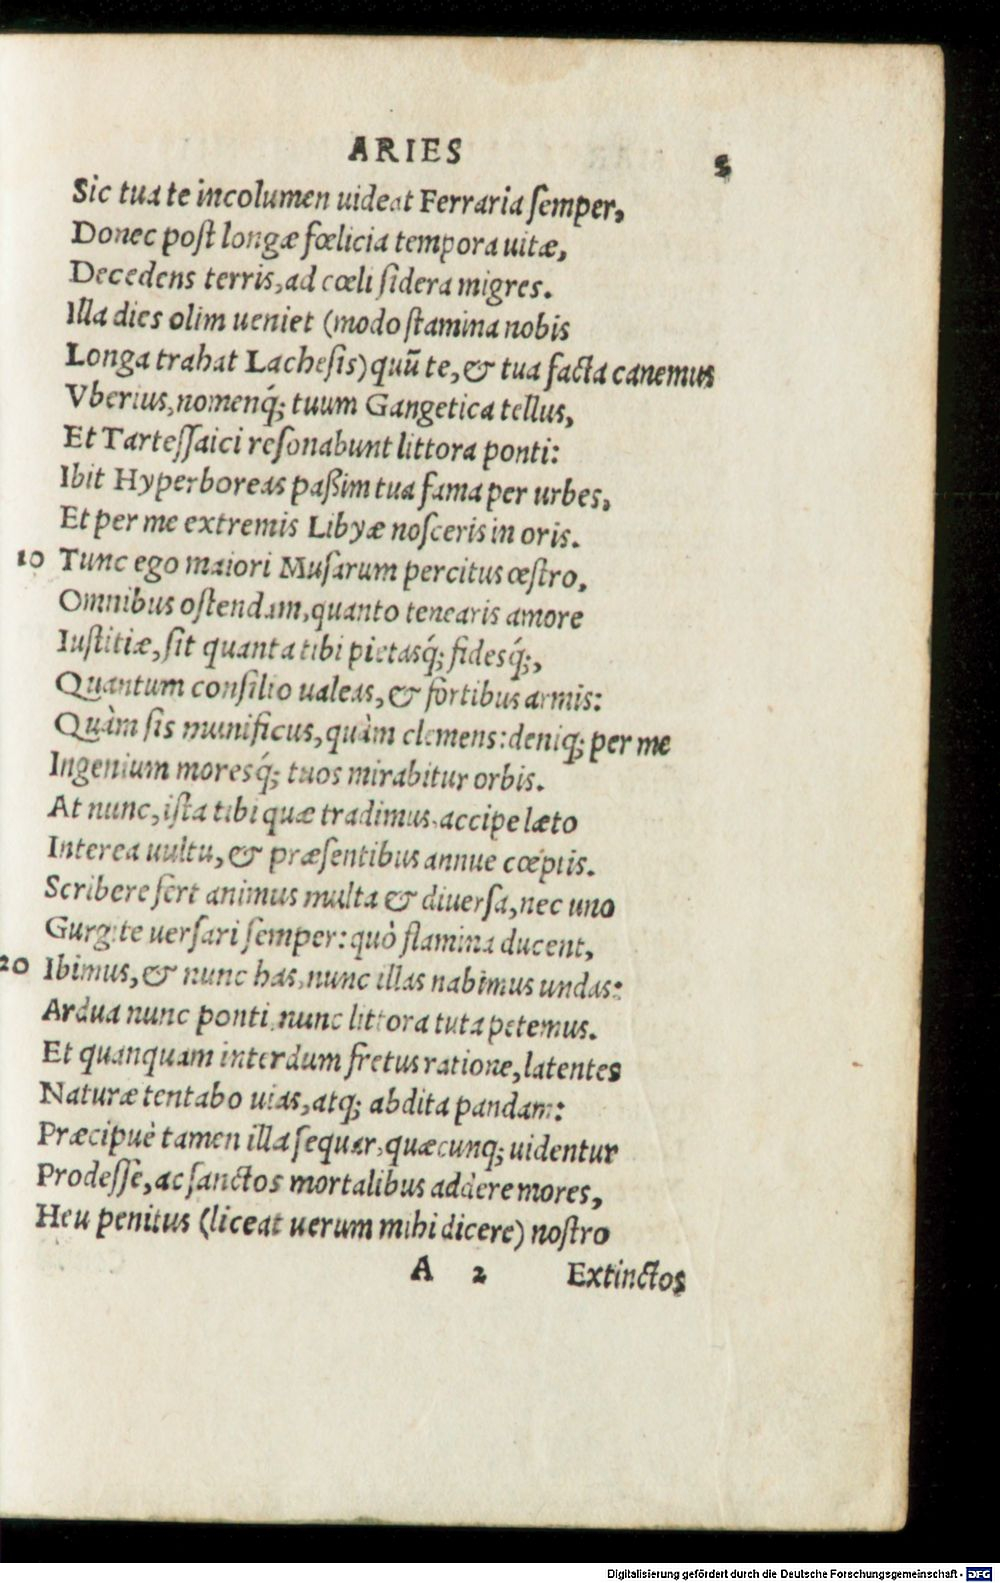 ARIES 3
Sic tua te incolumen uideat Ferraria ſemper,
Donec poſt longæ fœlicia tempora uitæ,
Decedens terris, ad cœli ſidera migres.
Illa dies olim ueniet (modo ſtamina nobis
Longa trahat Lacheſis) quũ te, & tua facta canemus
Vberius, nomenq́; tuum Gangetica tellus,
Et Tarteſſaici reſonabunt littora ponti:
Ibit Hyperboreas paßim tua fama per urbes,
Et per me extremis Libyæ noſceris in oris.
10 Tunc ego maiori Muſarum percitus œſtro,
Omnibus oſtendam, quanto tenearis amore
Iuſtitiæ, ſit quanta tibi pietasq́; fidesq́;,
Quantum conſilio ualeas, & fortibus armis:
Quàm ſis munificus, quàm clemens: deniq; per me
Ingenium moresq́; tuos mirabitur orbis.
At nunc, iſta tibi quæ tradimus, accipe læto
Interea uultu, & præſentibus annue cœptis.
Scribere fert animus multa & diuerſa, nec uno
Gurgite uerſari ſemper: quò flamina ducent,
20 Ibimus, & nunc has, nunc illas nabimus undas:
Ardua nunc ponti, nunc littora tuta petemus.
Et quanquam interdum fretus ratione, latentes
Naturæ tentabo uias, atq; abdita pandam:
Præcipuè tamen illa ſequar, quæcunq; uidentur
Prodeſſe, ac ſanctos mortalibus addere mores,
Heu penitus (liceat uerum mihi dicere) noſtro
A 2 Extinctos
Digitalisierung gefördert durch die Deutsche Forschungsgemeinschaft - DFG